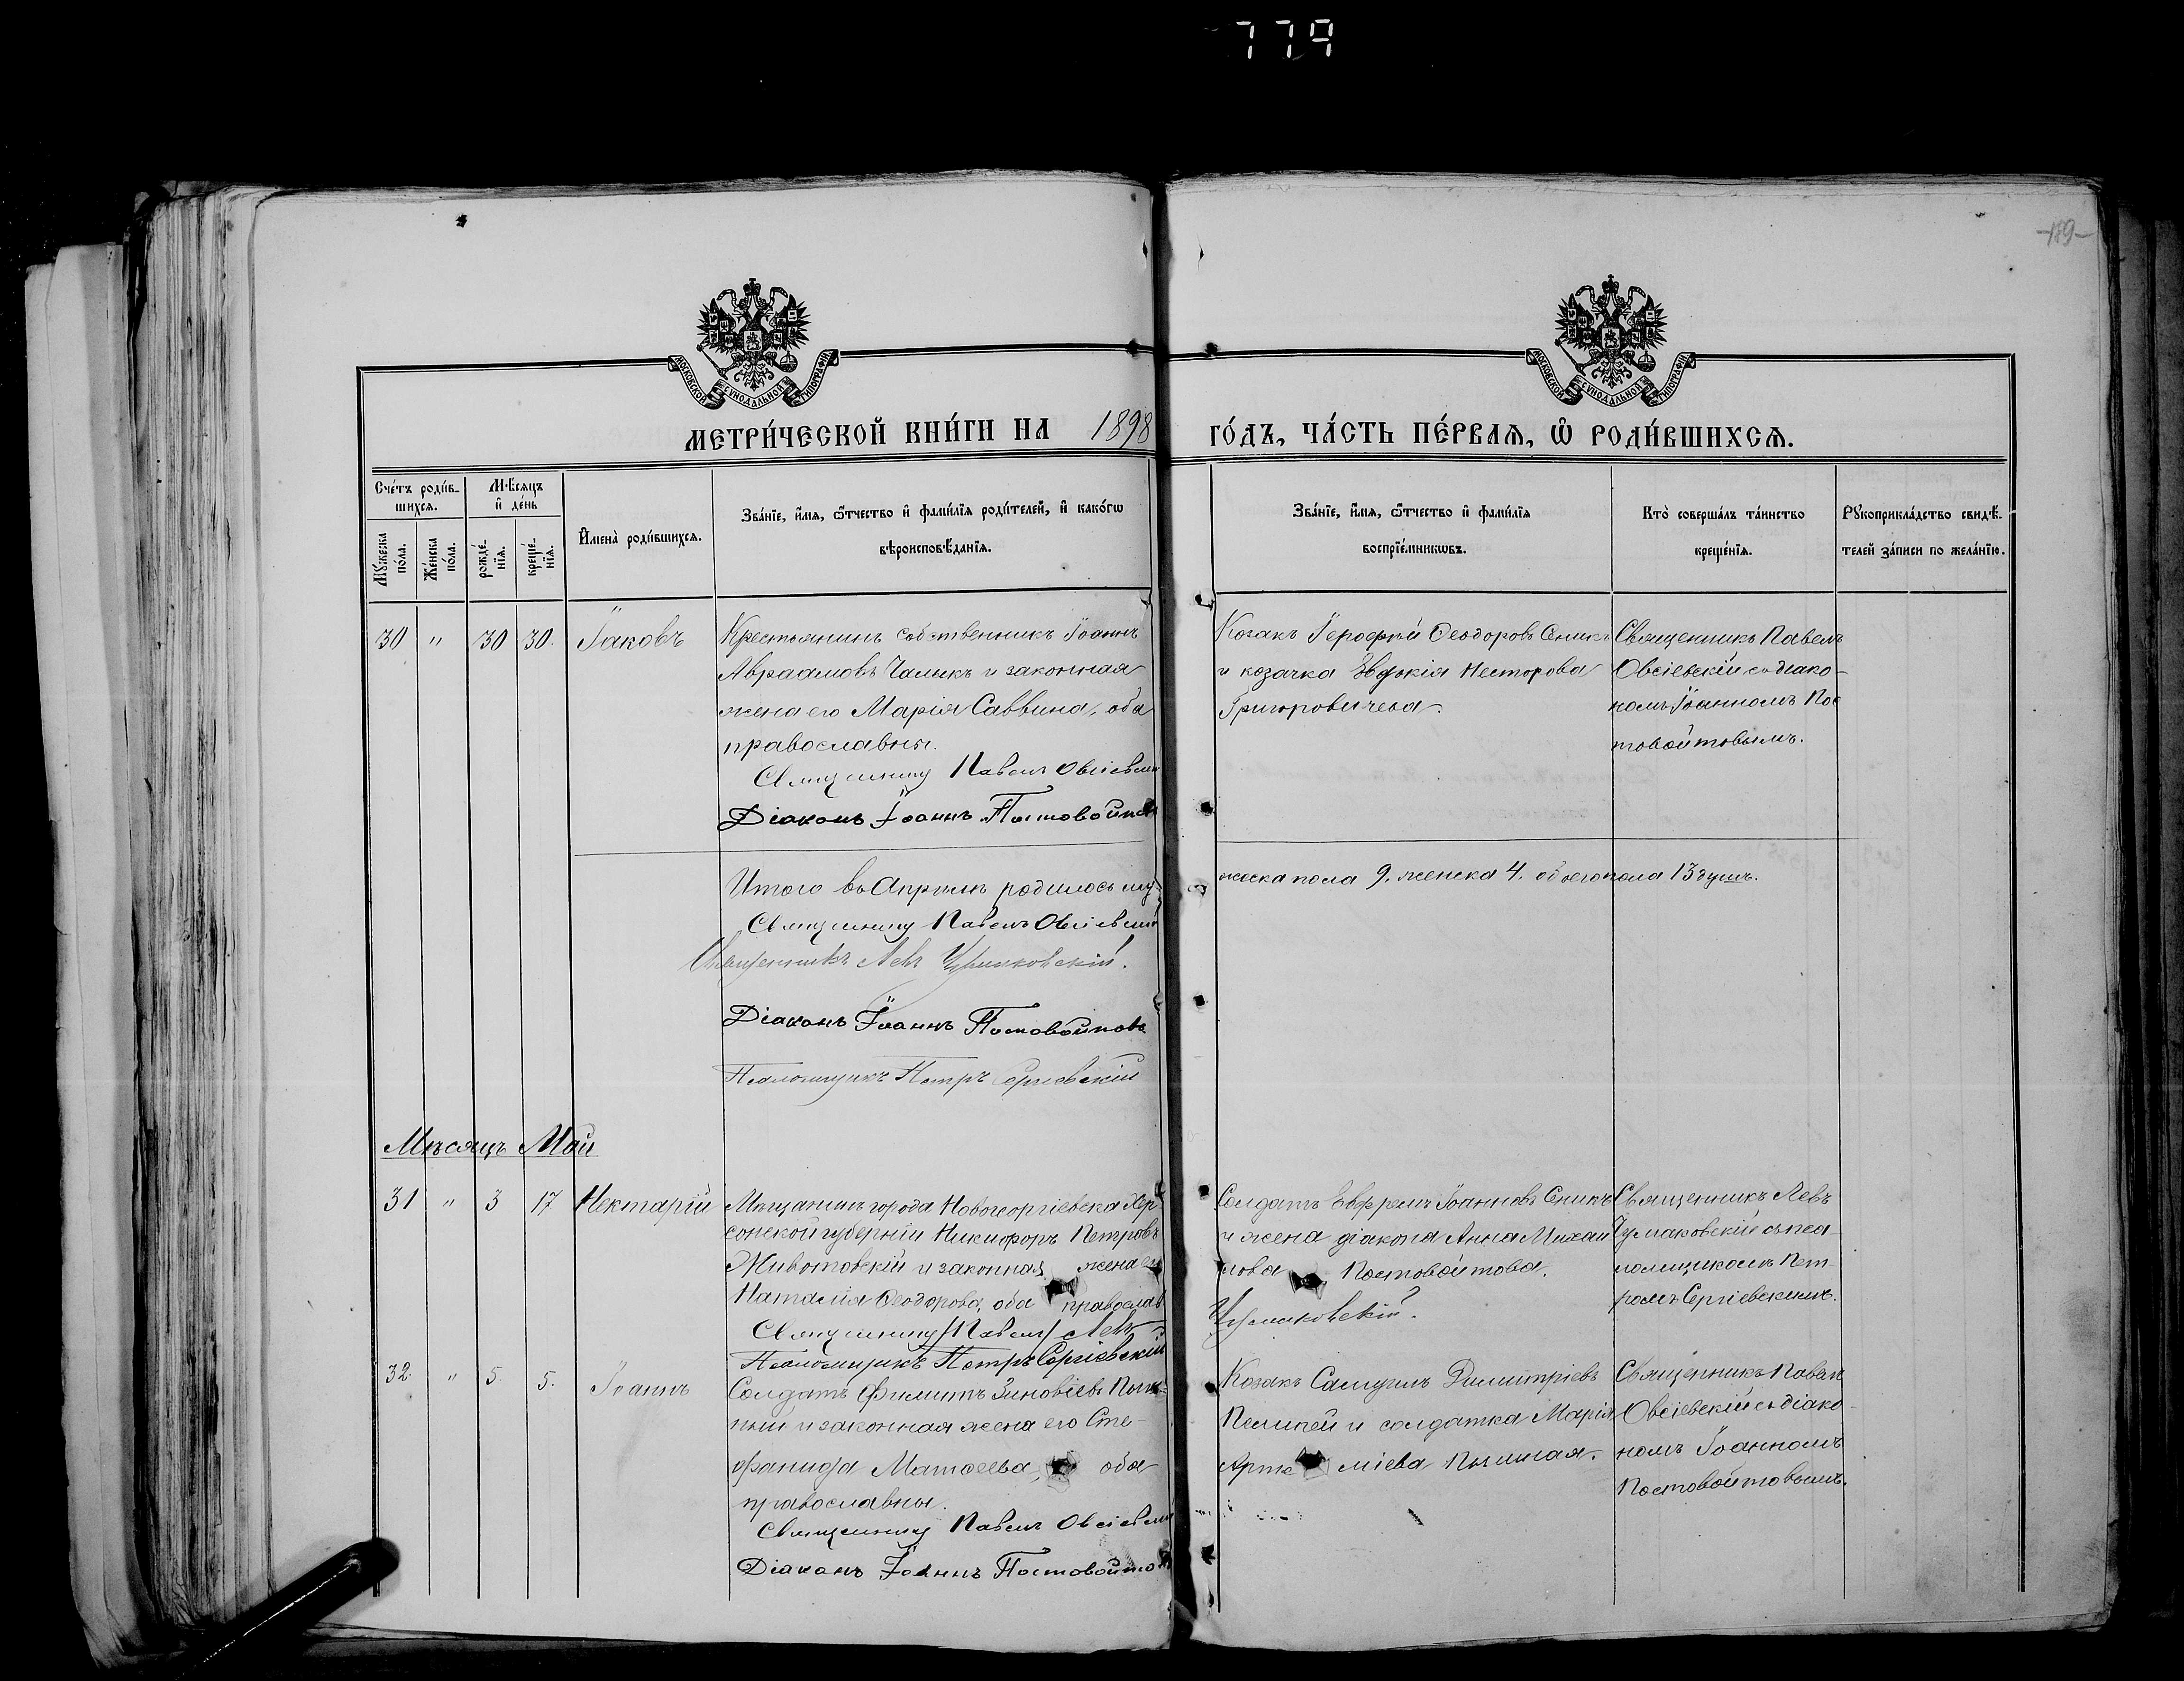 779
-189-
МОСКОВСКОЙ СУНОДАЛЬНОЙ ТИПОГРАФІИ
МОСКОВСКОЙ СУНОДАЛЬНОЙ ТИПОГРАФІИ
МЕТРИ́ЧЕСКОЙ КНИ́ГИ НА 1898
ГО́ДЪ, ЧА́СТЬ ПЕ́РВАѦ, Ѿ РОДИ́ВШИХСѦ.
Сче́тъ роди́в-
шихсѧ.
Мѣ́сяцъ
и҆ де́нь
Мꙋ́жеска
по́ла.
Же́нска
по́ла.
рожде́-
нїѧ.
креще́-
нїѧ.
И҆мена̀ роди́вшихсѧ.
Зва́нїе, и҆́мѧ, ѻ҆́тчество и҆ фами́лїѧ роди́телей, и҆ како́гѡ
вѣроисповѣ́данїѧ.
Зва́нїе, и҆́мѧ, ѻ҆́тчество и҆ фами́лїѧ
воспрїе́мникѡвъ.
Кто̀ соверша́лъ та́инство
креще́нїѧ.
Рꙋкоприкла́дство свидѣ́-
телей за́писи по жела́нїю.
30 " 30 30. Іаковъ
Крестьянинъ собственникъ Іоаннъ
Авраамовъ Чалыкъ и законная
жена его Марія Саввина, оба
православны.
Священникъ Павелъ Овсіевскій
Діаконъ Іоаннъ Постовойтовъ
Козакъ Іерофей Ѳеодоровъ Сеникъ
и козачка Евдокія Несторова
Григоровичева.
Священникъ Павелъ
Овсіевскій съ діако-
номъ Іоанномъ Пос
товойтовымъ.
Итого въ Апрѣлѣ родилось му-
жеска пола 9. женска 4. обоего пола 13 душъ.
Священникъ Павелъ Овсіевскій
Священникъ Левъ Чумаковскій.
Діаконъ Іоаннъ Постовойтовъ
Псаломщикъ Петръ Сергіевскій
Мѣсяцъ Май
31 " 3 17 Нектарій
Мѣщанинъ города Новогеоргіевска Хер-
сонской губерніи Никифоръ Петровъ
Животовскій и законная жена его
Наталія Ѳеодорова, оба православ
Священникъ /Павелъ/ Левъ
Чумаковскій.
Псаломщикъ Петръ Сергіевскій
Солдатъ Евфремъ Іоанновъ Сеникъ
и жена діакона Анна Михаи
лова Постовойтова.
Священникъ Левъ
Чумаковскій съ пса-
ломщикомъ Пет-
ромъ Сергіевскимъ.
32. " 5. 5. Іоаннъ
Солдатъ Филиппъ Зиновіевъ
и законная жена его Сте-
фанида Матѳеева, оба
православны.
Священникъ Павелъ Овсіевскій
Діаконъ Іоаннъ Постовойтовъ
Козакъ Самуилъ Димитріевъ
Пелипей и солдатка Марія
Арте міева
Священникъ Павелъ
Овсіевскій съ діако-
номъ Іоанномъ
Постовойтовымъ.